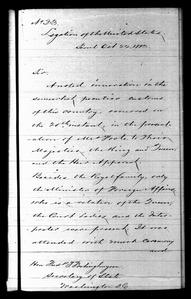 Legation of the United States
Sir:
A noted innovation in the
somewhat customs
of this country, occurred on
the 20th instant, in the presen-
tation of Mrs. Foote to Their
Majesties, the King and Queen,
and the Heir Apparent.
Besides the Royal family, only
the Minister of Foreign Affairs
who is a relation of the Queen,
the Court Ladies and the Inter-
preter were present. It was
attended with much ceremony
and
Secretary of State
Washington D.C.